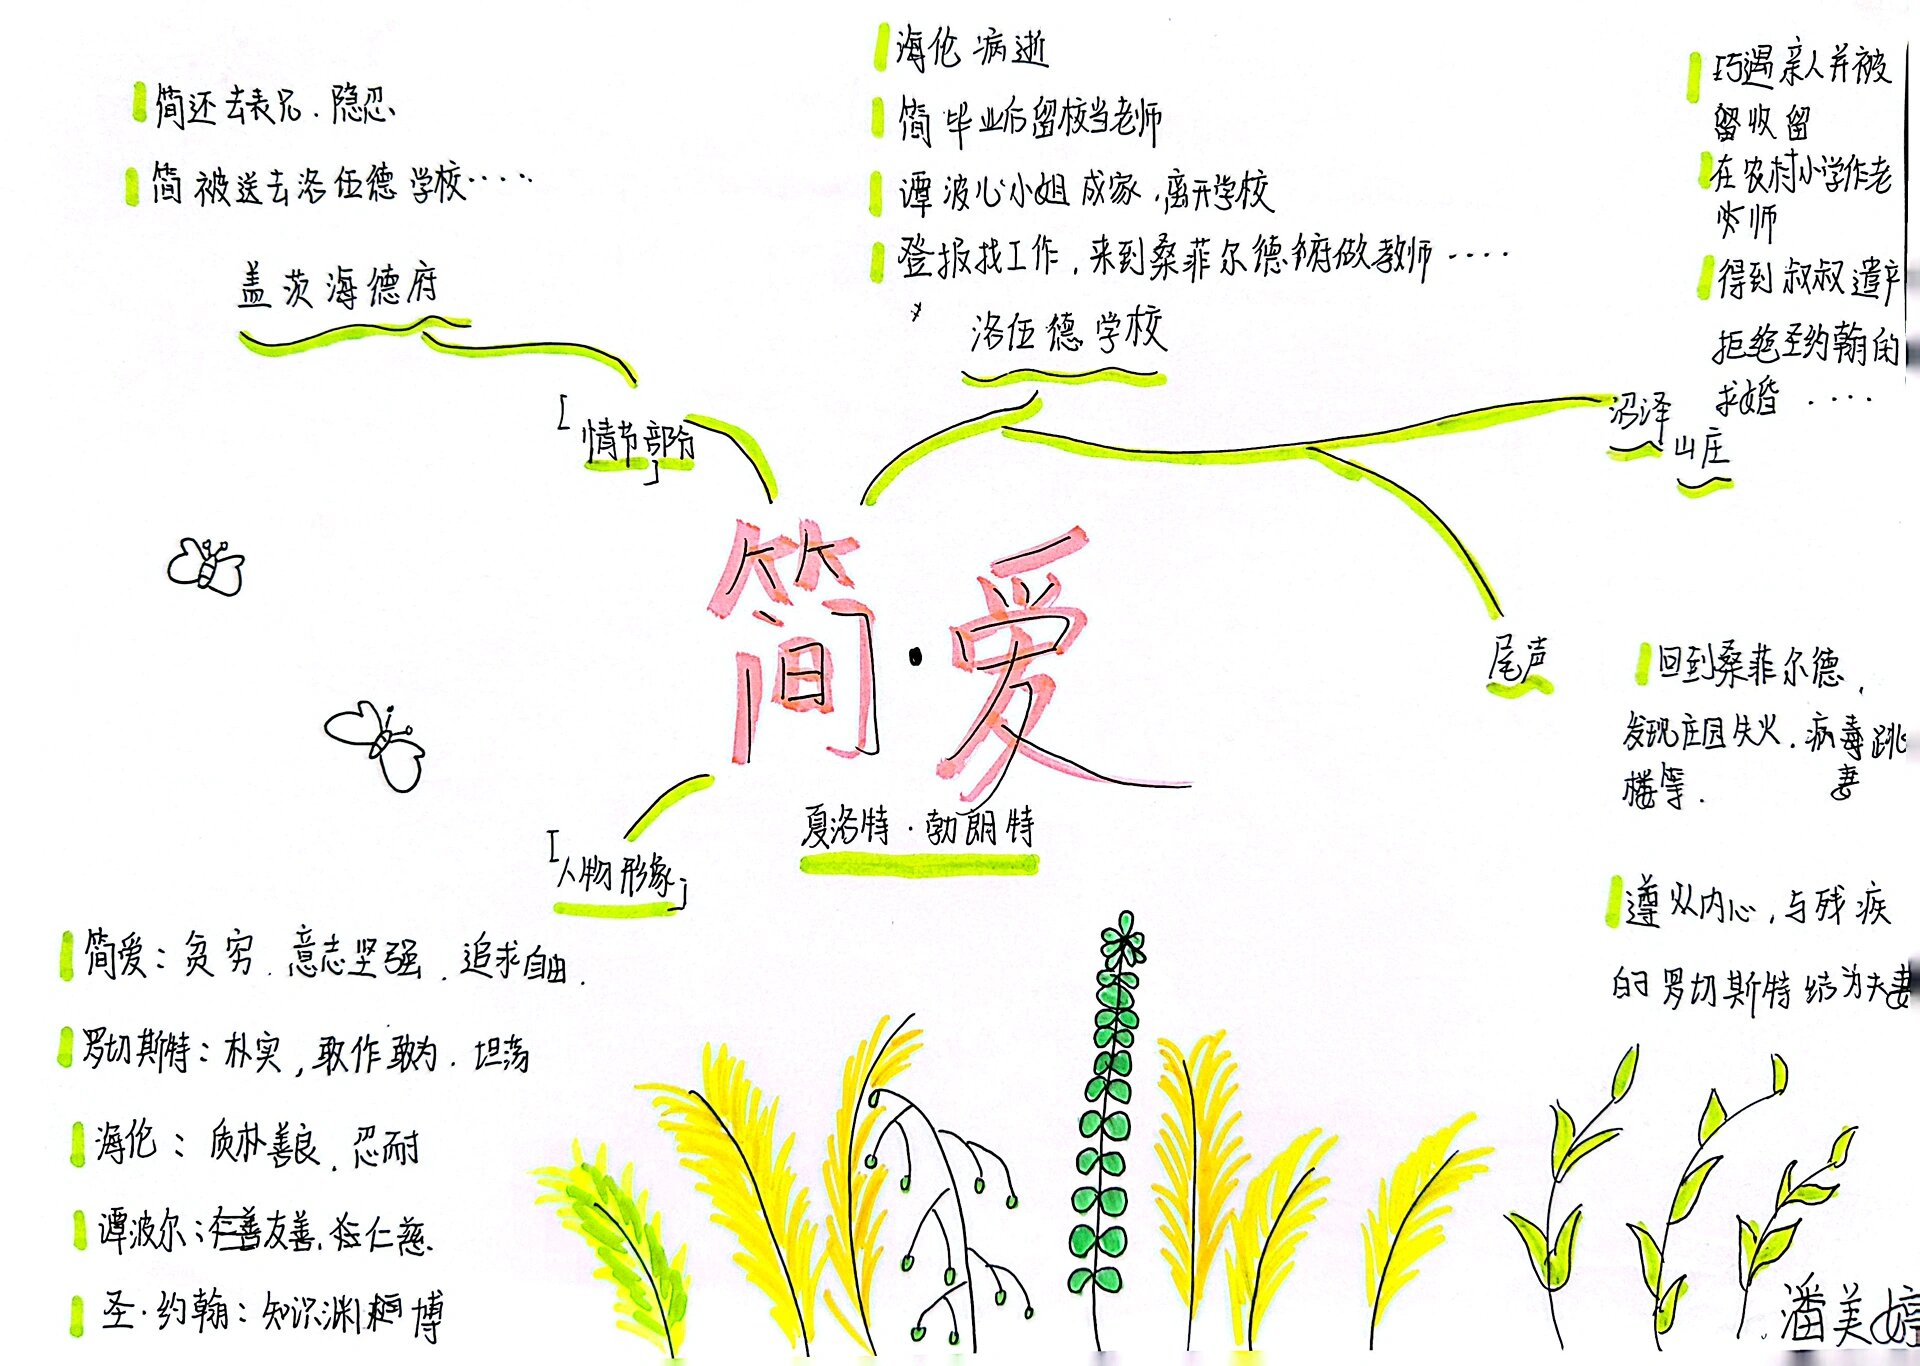 简还去表兄.隐忍
简被送去洛伍德学校·····
盖茨海德府
[情节部分]
海伦病逝
简毕业后留校当老师
谭波心小姐成家,离开学校
登报找工作,来到桑菲尔德府做教师····
洛伍德学校
巧遇亲人并被
留收留
在农村小学作老
师
得到叔叔遗产
拒绝圣约翰的
求婚····
沼泽
山庄
尾声
回到桑菲尔德,
发现庄园失火.病妻跳
楼等.
遵从内心,与残疾
的罗切斯特结为夫妻
简·爱
夏洛特·勃朗特
[人物形象]
简爱:贫穷.意志坚强.追求自由.
罗切斯特:朴实,敢作敢为.坦荡
海伦:质朴善良.忍耐
谭波尔:友善.仁慈.
圣·约翰:知识渊博
潘美婷